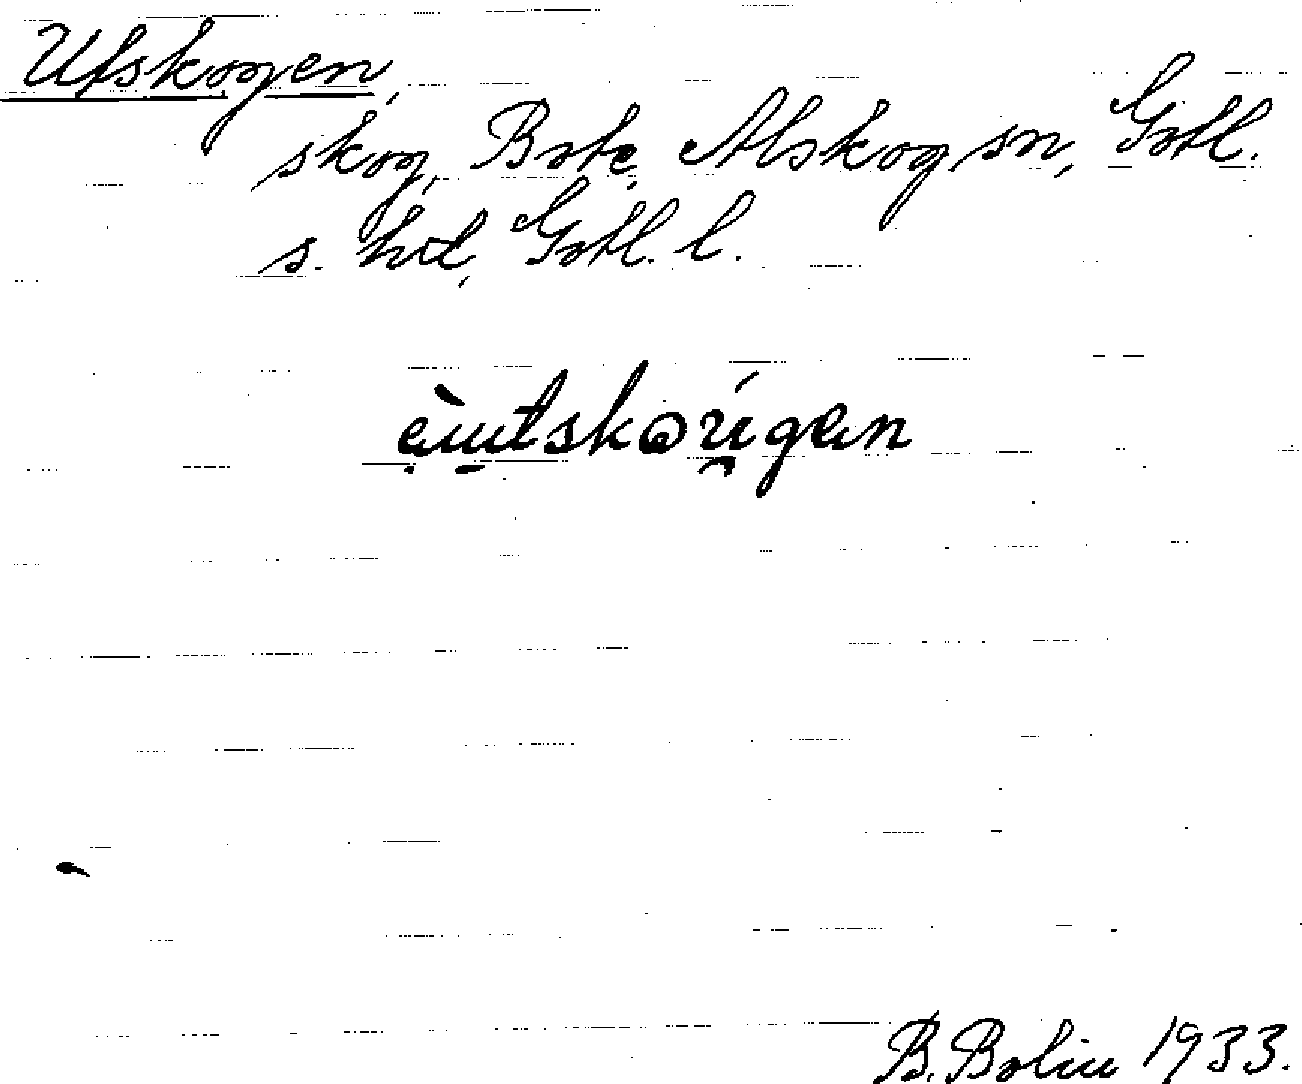 Utskogen,
skog, Bote, Alskog sn, Gotl.
s. hd, Gotl. l.
B. Bolin 1933.